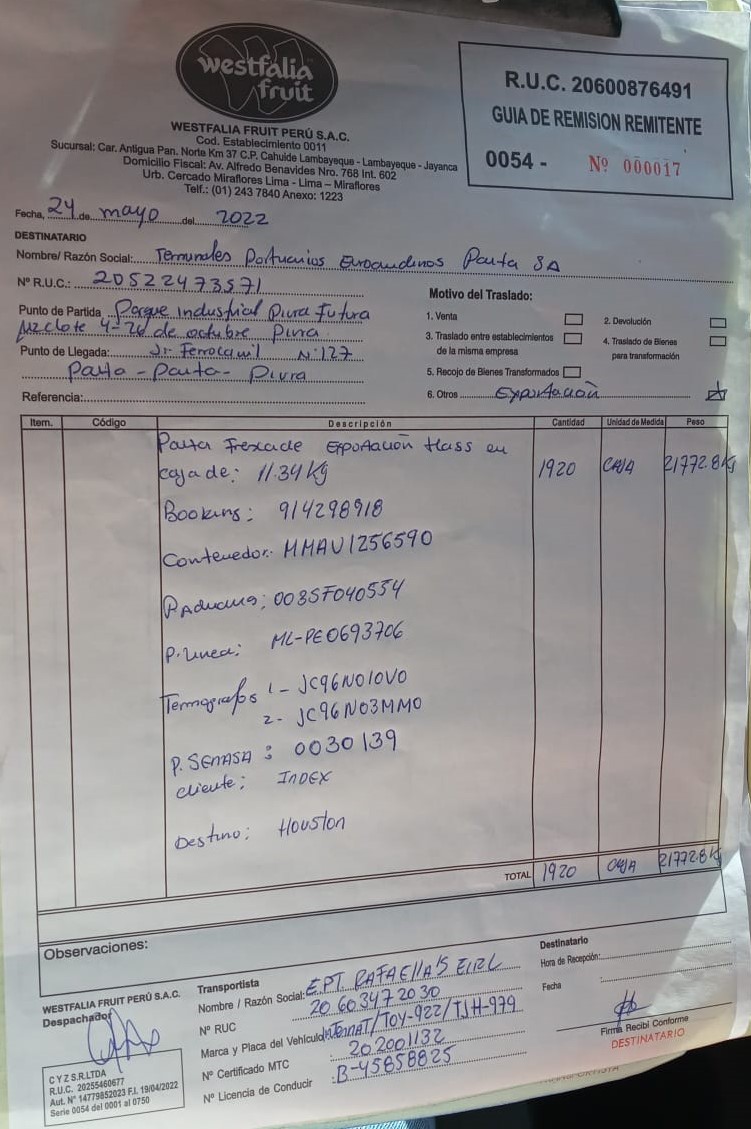 westfalia
fruit
WESTFALIA FRUIT PERÚ S.A.C.
Cod. Establecimiento 0011
Sucursal: Car. Antigua Pan. Norte Km 37 C.P. Cahuide Lambayeque - Lambayeque - Jayanca
Domicilio Fiscal: Av. Alfredo Benavides Nro. 768 Int. 602
Urb. Cercado Miraflores Lima - Lima – Miraflores
Telf.: (01) 243 7840 Anexo: 1223
R.U.C. 20600876491
GUIA DE REMISION REMITENTE
0054 - Nº 000017
Fecha, 24 de mayo del 2022
DESTINATARIO
Nombre/ Razón Social: Terminales Portuarios Euroandinos Paita SA
Nº R.U.C.: 20522473571
Punto de Partida Parque industrial Piura Futura
Mz clote 4-26 de octubre Piura
Punto de Llegada: Jr Ferrocarril Nº127
Paita - Paita - Piura
Referencia:
Motivo del Traslado:
1. Venta
2. Devolución
3. Traslado entre establecimientos
de la misma empresa
4. Traslado de Bienes
para transformación
5. Recojo de Bienes Transformados
6. Otros Exportación
Item. Código Descripción Cantidad Unidad de Medida Peso
Palta Fresca de Exportación Hass en
caja de: 11.34 Kg 1920 CAJA 21772.8 Kg
Booking: 914298918
Contenedor: MMAU1256590
P.Aduana: 0035F040554
P. Linea: ML-PE0693706
Termografos 1- JC96N010V0
2- JC96N03MM0
P. SENASA: 0030139
cliente: INDEX
Destino: Houston
TOTAL 1920 CAJA 21772.8 Kg
Observaciones:
WESTFALIA FRUIT PERÚ S.A.C.
Despachador
C Y Z S.R.LTDA
R.U.C. 20255460677
Aut. Nº 14779852023 F.I. 19/04/2022
Serie 0054 del 0001 al 0750
Transportista
Nombre / Razón Social: E.P.T. RAFAELLA'S EIRL
Nº RUC 20603472030
Marca y Placa del Vehículo InternAT/TOY-922/TJH-979
Nº Certificado MTC 202001132
Nº Licencia de Conducir : B-45858825
Destinatario
Hora de Recepción:
Fecha :
Firma Recibí Conforme
DESTINATARIO
TRANSPORTISTA